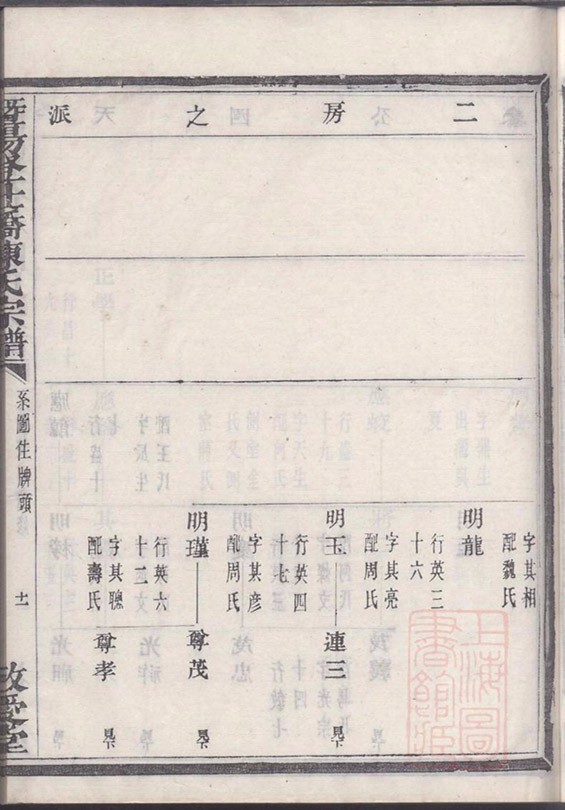 二房之派
字其相
配魏氏
明龍
行英三
十六
字其亮
配周氏
明玉——連三 見下
行英四
十七
字其彦
配周氏
明瑾——尊茂 見下
行英六
十二
字其聰
配壽氏
尊孝 見下
陳氏宗譜
系圖住牌頭
十一
敬愛堂
上海圖書館藏